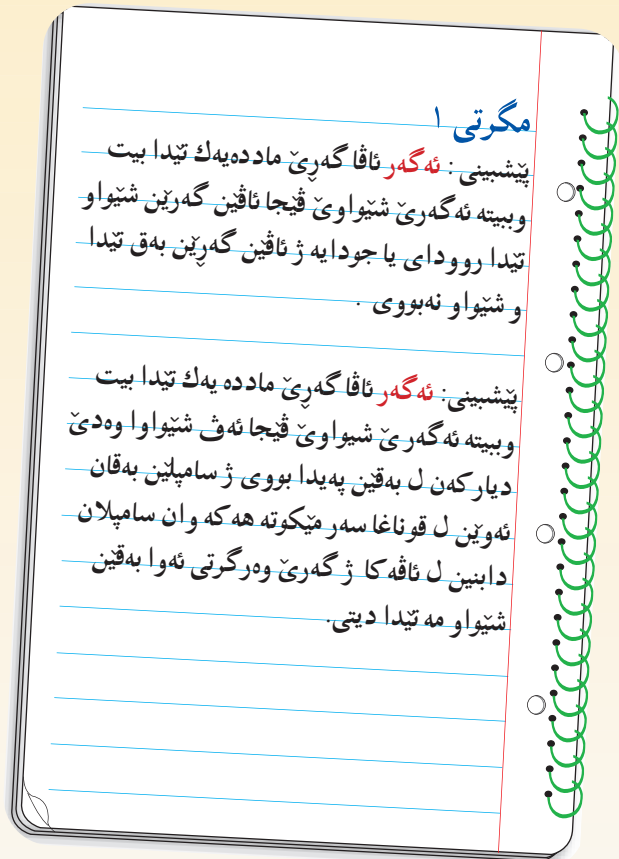 مگرتی ١
پێشبینی : ئەگەر ئاڤا گەڕێ ماددەیەك تێدا بیت
وببیتە ئەگەرێ شێواوێ ڤێجا ئاڤێن گەرێن شێواو
تێدا روودای یا جودایە ژ ئاڤێن گەڕێن بەق تێدا
و شێواو نەبووی .
پێشبینی: ئەگەر ئاڤا گەڕێ ماددە یەك تێدا بیت
وببیتە ئەگەر ێ شیواوێ ڤێجا ئەڤ شێواوا وەدێ
دیارکەن ل بەقێن پەیدا بووی ژ سامپلێن بەقان
ئەوێن ل قوناغا سەر مێکوتە هەکە وان سامپلان
دابنین ل ئاڤەکا ژ گەرێ وەرگرتی ئەوا بەقێن
شێواو مە تێدا دیتی.